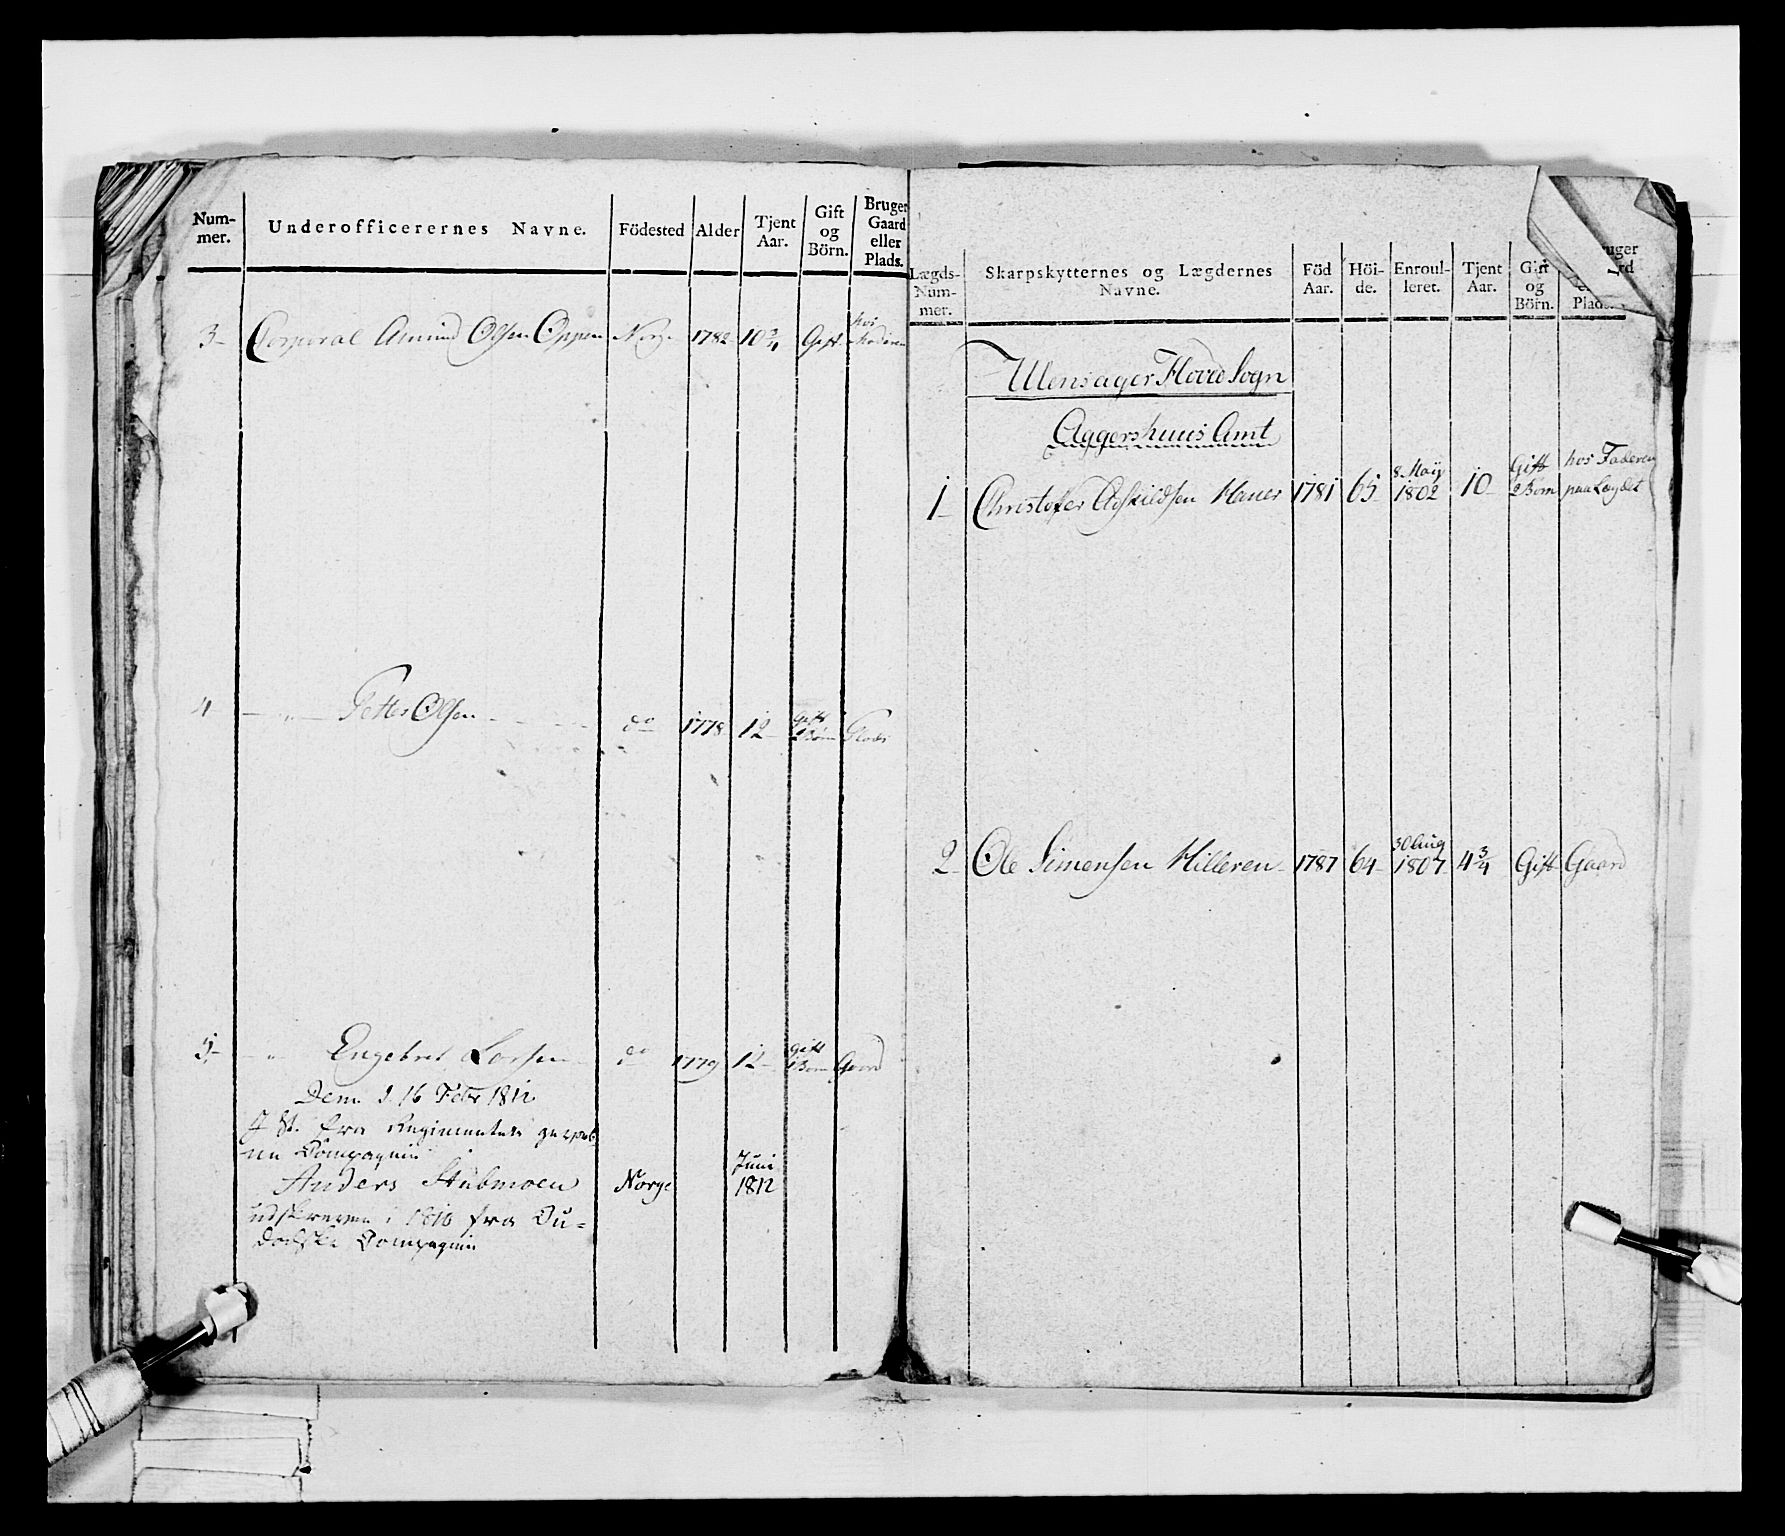 Num-
mer.
Underofficerernes Navne.
Födested
Alder
Tjent
Aar.
Gift
og
Börn.
Bruger
Gaard
eller
Plads.
3 Corporal Amund Olsen Oppen Norge 1782 10 3/4 Gift hos Moderen
4 — " — Petter Olsen do 1778 12 Gift 2 Börn Plads
5 — " Engebret Larsen do 1779 12 Gift Börn Gaard
Dem. d. 16 Febr 1812
J St. fra Regimentets
Compagnie
Anders Stubmoen Norge Juni 1812
udskreven i 1810 fra Ou=
dalske Compagnie
Lægds-
Num-
mer.
Skarpskytternes og Lægdernes
Navne.
Föd
Aar.
Höi-
de.
Enroul-
leret.
Tjent
Aar.
Gift
og
Börn.
Plads.
Ulensager Hoved Sogn
Aggershuus Amt
1 Christofer Askildsen Hauer 1781 65 8 Maij 1802 10 Gift 2 Börn hos Faderen paa Lægdet
2 Ole Simensen Hilleren 1787 64 30 Aug 1807 4 3/4 Gift Gaard